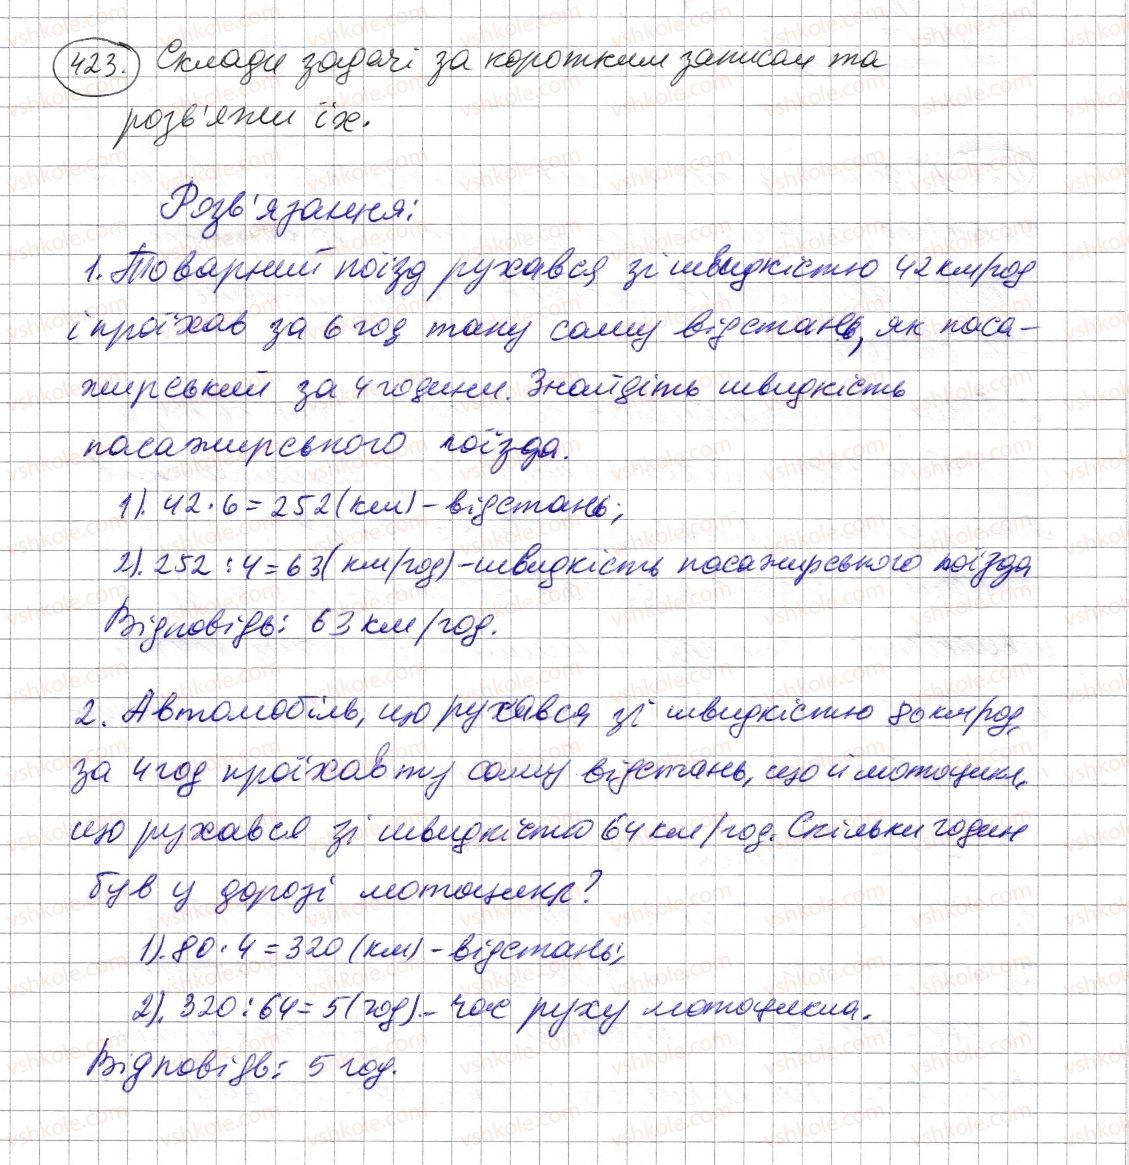 423. Склади задачі за коротким записом та
розв'яжи їх.
Розв'язання:
1. Товарний поїзд рухався зі швидкістю 42 км/год
і проїхав за 6 год таку саму відстань, як паса-
жирський за 4 години. Знайдіть швидкість
пасажирського поїзда.
1). 42·6=252(км)-відстань;
2). 252:4=63(км/год)-швидкість пасажирського поїзда
Відповідь: 63 км/год.
2. Автомобіль, що рухався зі швидкістю 80 км/год,
за 4 год проїхав ту саму відстань, що й мотоцикл,
що рухався зі швидкістю 64 км/год. Скільки годин
був у дорозі мотоцикл?
1). 80·4=320(км)-відстань;
2). 320:64=5(год)-час руху мотоцикла.
Відповідь: 5 год.